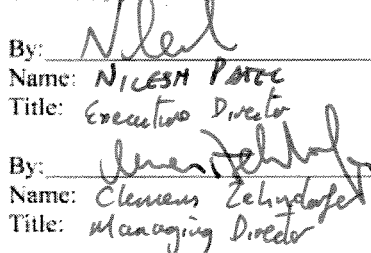 By:
Name: NILESH PATEL
Title: Executive Director
By:
Name: Clemens Zehndorfer
Title: Managing Director